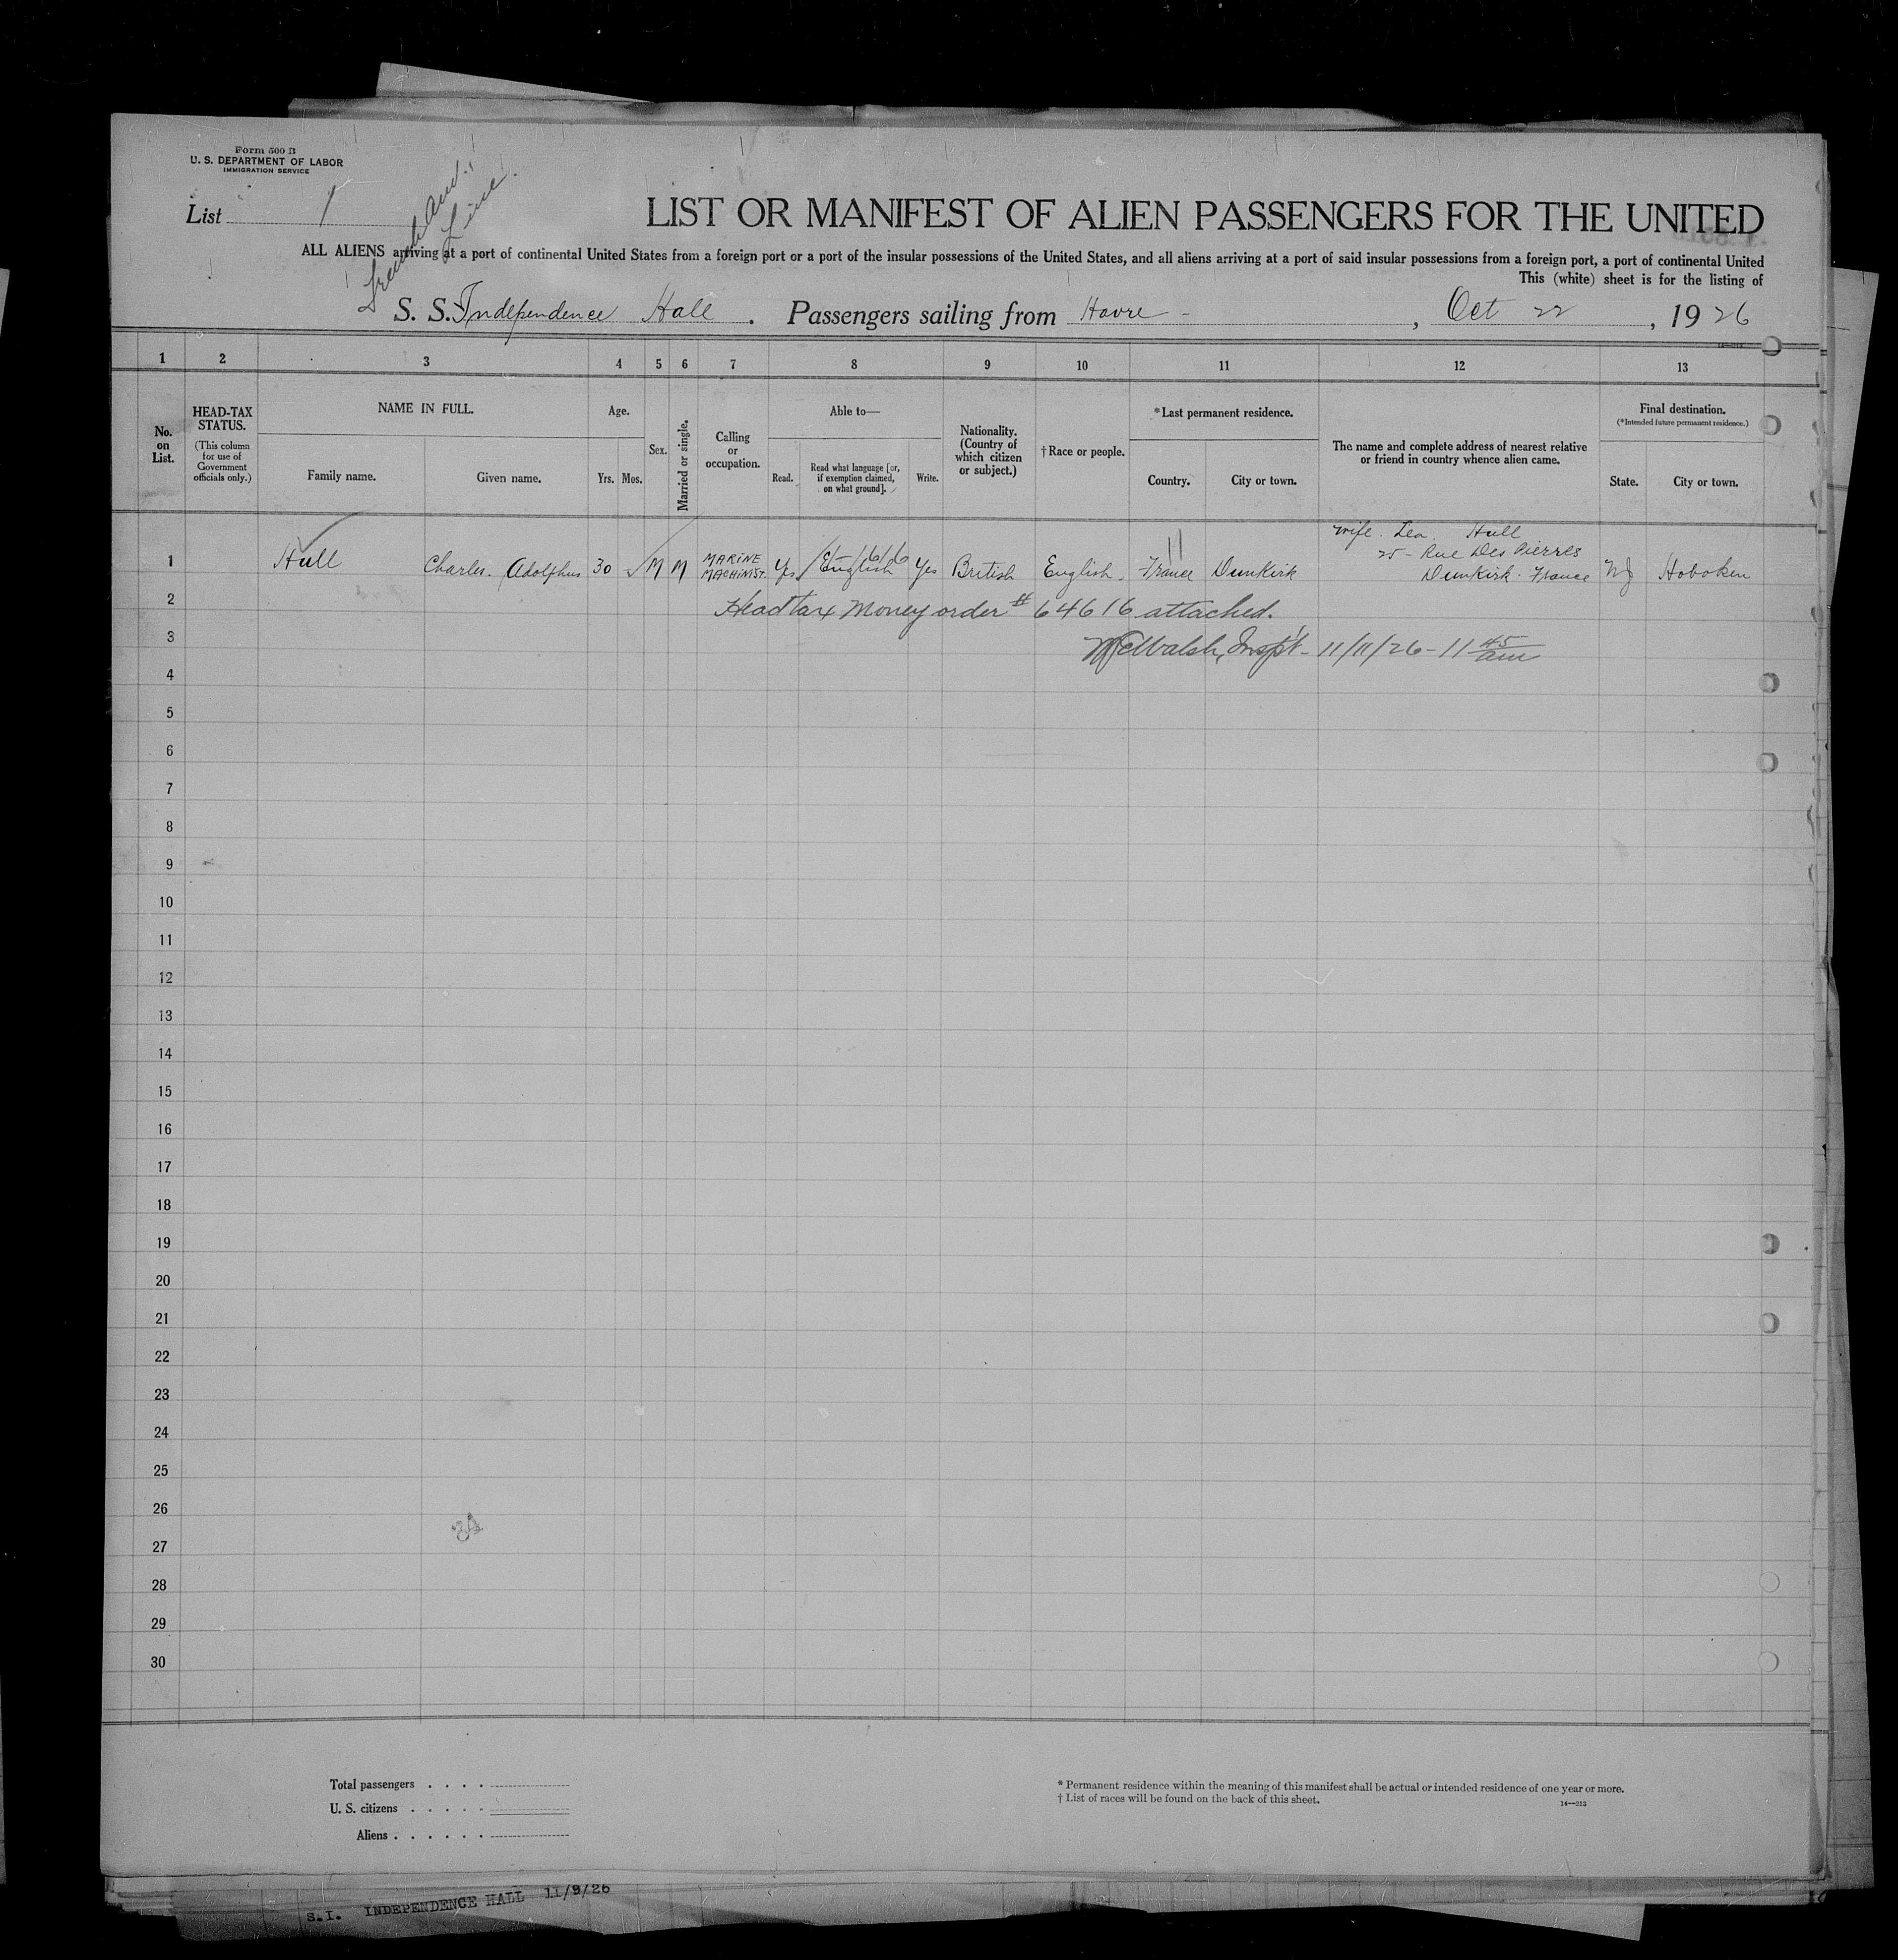 Form 500 B
U. S. DEPARTMENT OF LABOR
IMMIGRATION SERVICE
List 1
LIST OR MANIFEST OF ALIEN PASSENGERS FOR THE UNITED
French Am.
Line.
ALL ALIENS arriving at a port of continental United States from a foreign port or a port of the insular possessions of the United States, and all aliens arriving at a port of said insular possessions from a foreign port, a port of continental United
This (white) sheet is for the listing of
S. S. Independence Hall . Passengers sailing from Havre - , Oct 22 , 1926
1 2 3 4 5 6 7 8 9 10 11 12 13
No. on List.
HEAD-TAX STATUS.
(This column for use of Government officials only.)
NAME IN FULL.
Family name.
Given name.
Age.
Yrs.
Mos.
Sex.
Married or single.
Calling or occupation.
Able to—
Read.
Read what language [or, if exemption claimed, on what ground].
Write.
Nationality. (Country of which citizen or subject.)
†Race or people.
*Last permanent residence.
Country.
City or town.
The name and complete address of nearest relative or friend in country whence alien came.
Final destination.
(*Intended future permanent residence.)
State.
City or town.
wife. Lea. Hull
25 - Rue Des Pierres
1 Hull Charles. Adolphus 30 M M MARINE MACHINIST. Yes English Yes British English. France Dunkirk Dunkirk. France NJ Hoboken
2 Head tax Money order # 64616 attached.
3 Walsh, Insp't - 11/11/26 - 11 45 am
4
5
6
7
8
9
10
11
12
13
14
15
16
17
18
19
20
21
22
23
24
25
26
27
28
29
30
Total passengers . . . .
U. S. citizens . . . . .
Aliens . . . . . .
* Permanent residence within the meaning of this manifest shall be actual or intended residence of one year or more.
† List of races will be found on the back of this sheet.
14—213
S.I. INDEPENDENCE HALL 11/9/26